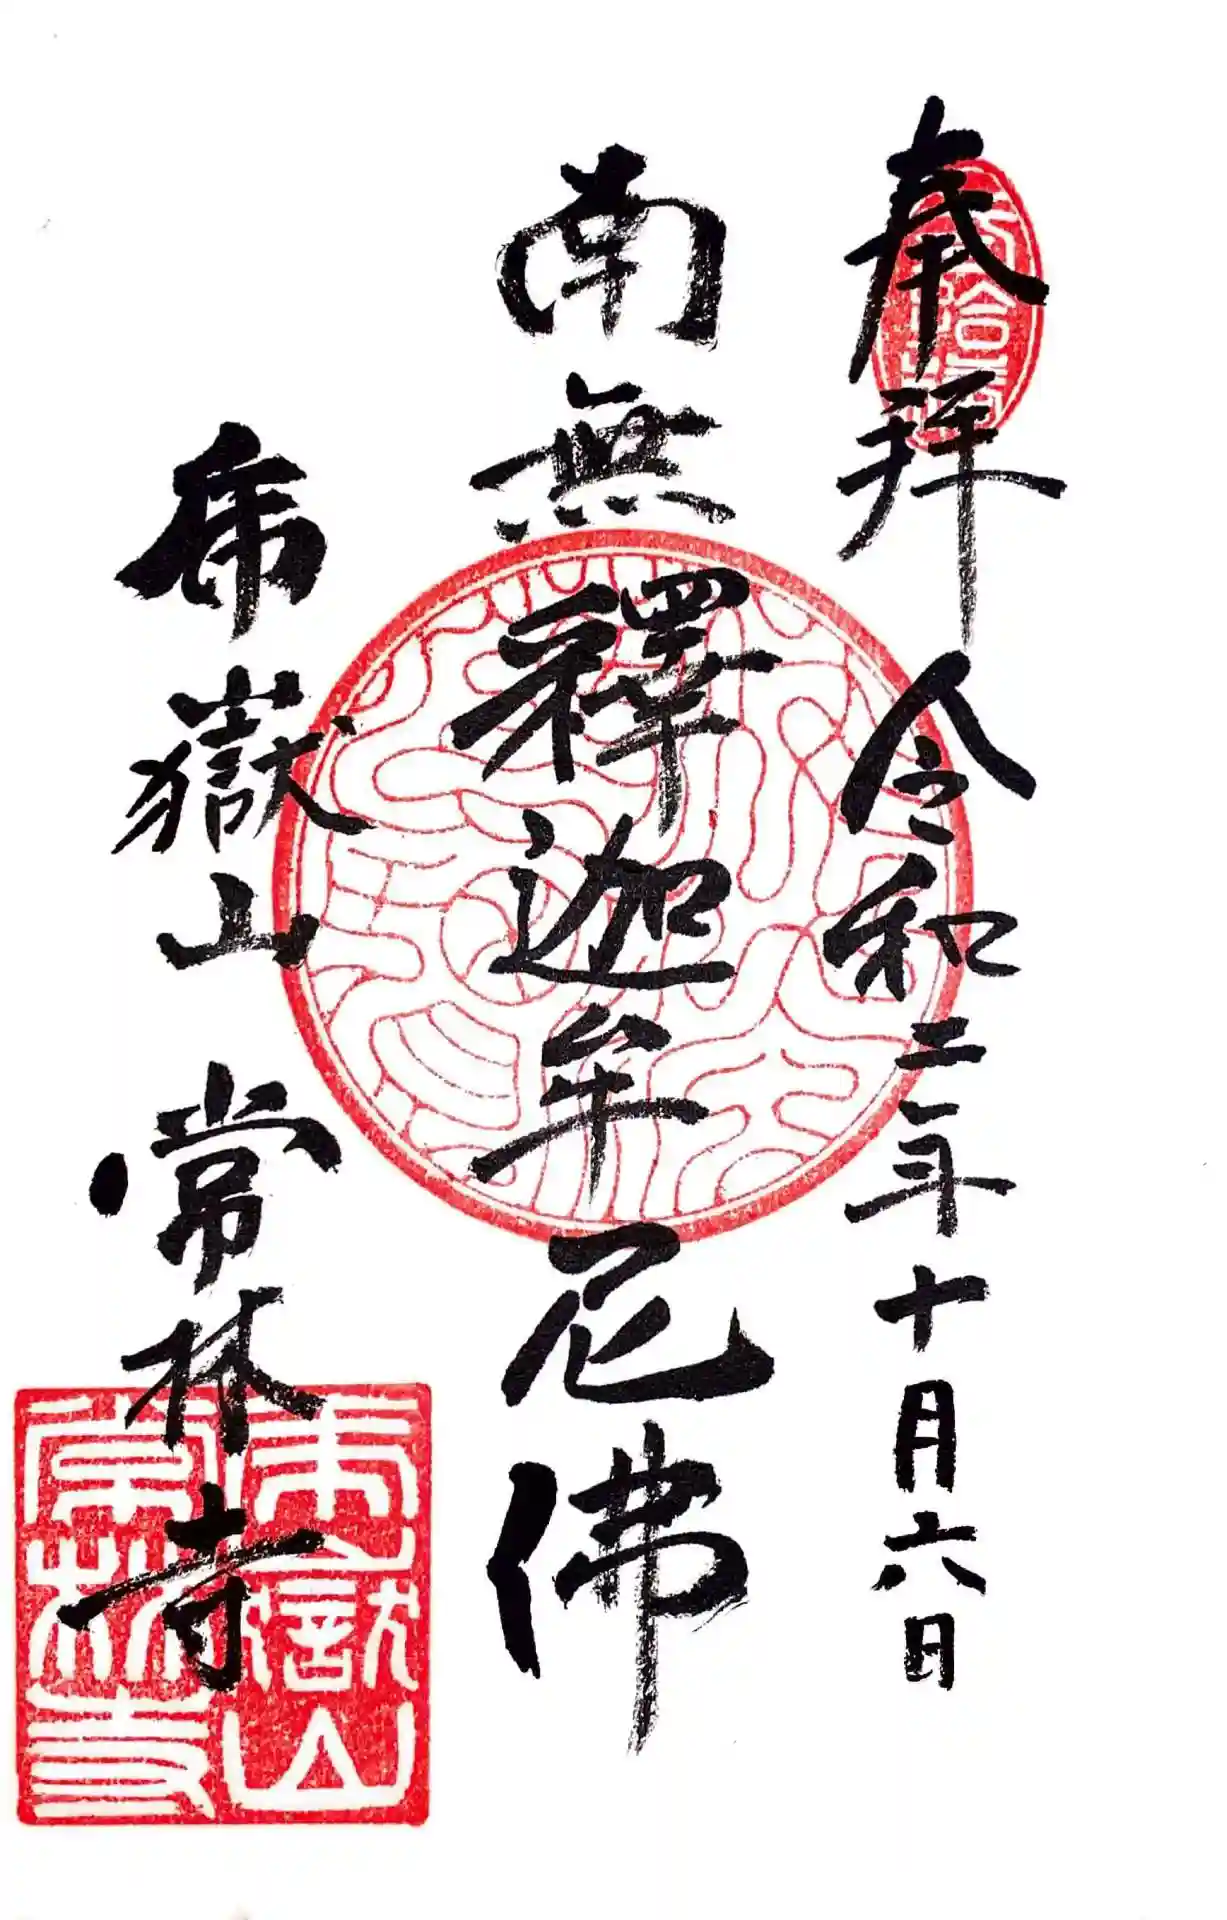 奉拝 令和三年十月六日
南無釋迦牟尼佛
乕嶽山 常林寺
乕嶽山
常林寺